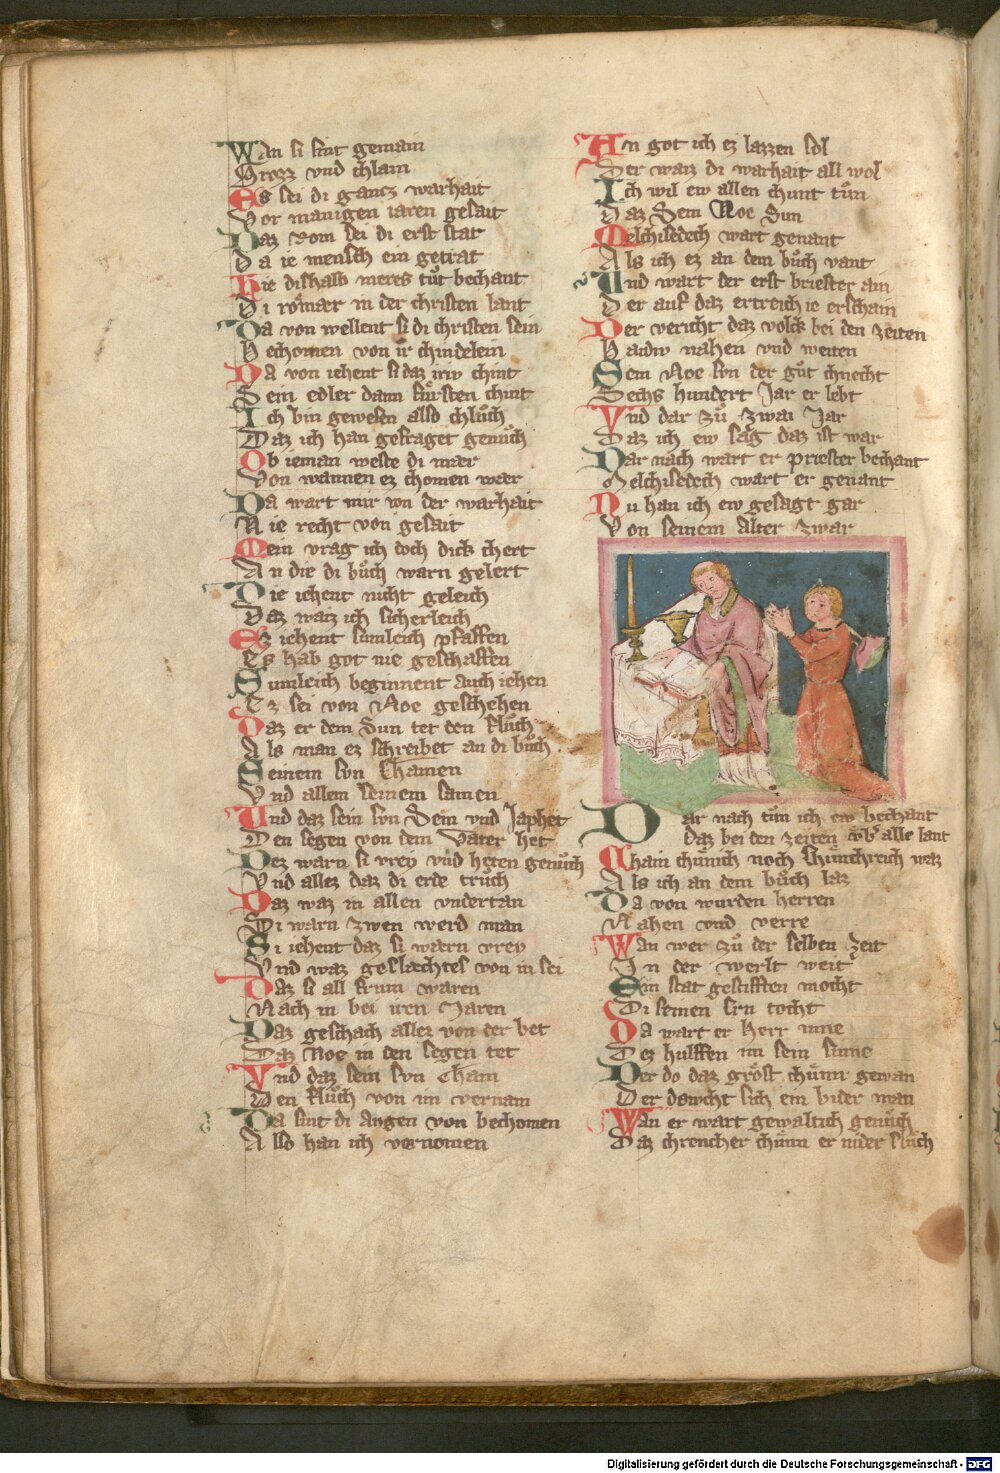 Wan si sint gemain
Grozz vnd chlain
Es sei di gancz warhait
Vor manigen iaren gesait
Daz Rom sei di erst stat
Da ie mensch ein getrat
Hie dishalb meres tuͦt bechant
Di roͤmær in der christen lant
Da von wellent si di christen sein
Bechomen von ir chindelein
Da von iehent si daz irw chint
Sein edler dann fuͤrsten chint
Ich bin gewesen also chluͦch
Daz ich han gefraget genuͦch
Ob ieman weste di mær
Von wannen ez chomen wær
Da wart mir von der warhait
Nie recht von gesait
Mein vrag ich doch dick chert
An die di buͦch warn gelert
Die iehent nicht geleich
Daz waiz ich sicherleich
Ez iehent sumleich pfaffen
Es hab got nie geschaffen
Sumleich beginnent auch iehen
Ez sei von Noe geschehen
Daz er dem Sun tet den fluͦch
Als man ez schreibet an di buͦch
Seinem sun Chamen
Vnd allem seinem samen
Vnd daz sein sun Sem vnd Japhet
Den segen von dem Vater het
Dez warn si vrey vnd heten genuͦch
Vnd allez daz di erde truͦch
Daz waz in allen vndertan
Di warn zwen werd man
Si iehent daz si wærn vrey
Vnd waz geslæchtes von in sei
Daz si all frum waren
Nach in bei iren Jaren
Daz geschach allez von der bet
Daz Noe in den segen tet
Vnd daz sein sun Cham
Den fluͦch von im vernam
Da sint di aygen von bechomen
Also han ich vernomen
An got ich ez lazzen sol
Der waiz di warhait all wol
Ich wil ew allen chunt tuͦn
Daz Sem Noe Sun
Melchisedech wart genant
Als ich ez an dem buͦch vant
Vnd wart der erst briester ain
Der auf daz ertreich ie erschain
Der vericht daz volck bei den zeiten
Baidw nahen vnd weiten
Sem Noe sun der guͦt chnecht
Sechs hundert Jar er lebt
Vnd dar zuͦ zwai Jar
Daz ich ew sag daz ist war
Dar nach wart er priester bechant
Melchisedech wart er genant
Nu han ich ew gesagt gar
Von seinem alter zwar
Dar nach tuͦn ich ew bechant
daz bei den zeiten vber alle lant
Chain chuͤnich noch Chuͤnchreich waz
Als ich an dem buͦch laz
Da von wurden herren
Nahen vnd verre
Wan wer zuͦ der selben zeit
In der werlt weit
Ein stat gestifften mocht
Di seinen ern tocht
Da wart er herr inne
Dez hulffen im sein sinne
Der do daz groͤst chuͤnn gewan
Der dowcht sich ein bider man
Wan er wart gewaltich genuͦch
Daz chrencher chuͤnn er nider sluͦch
Digitalisierung gefördert durch die Deutsche Forschungsgemeinschaft - DFG